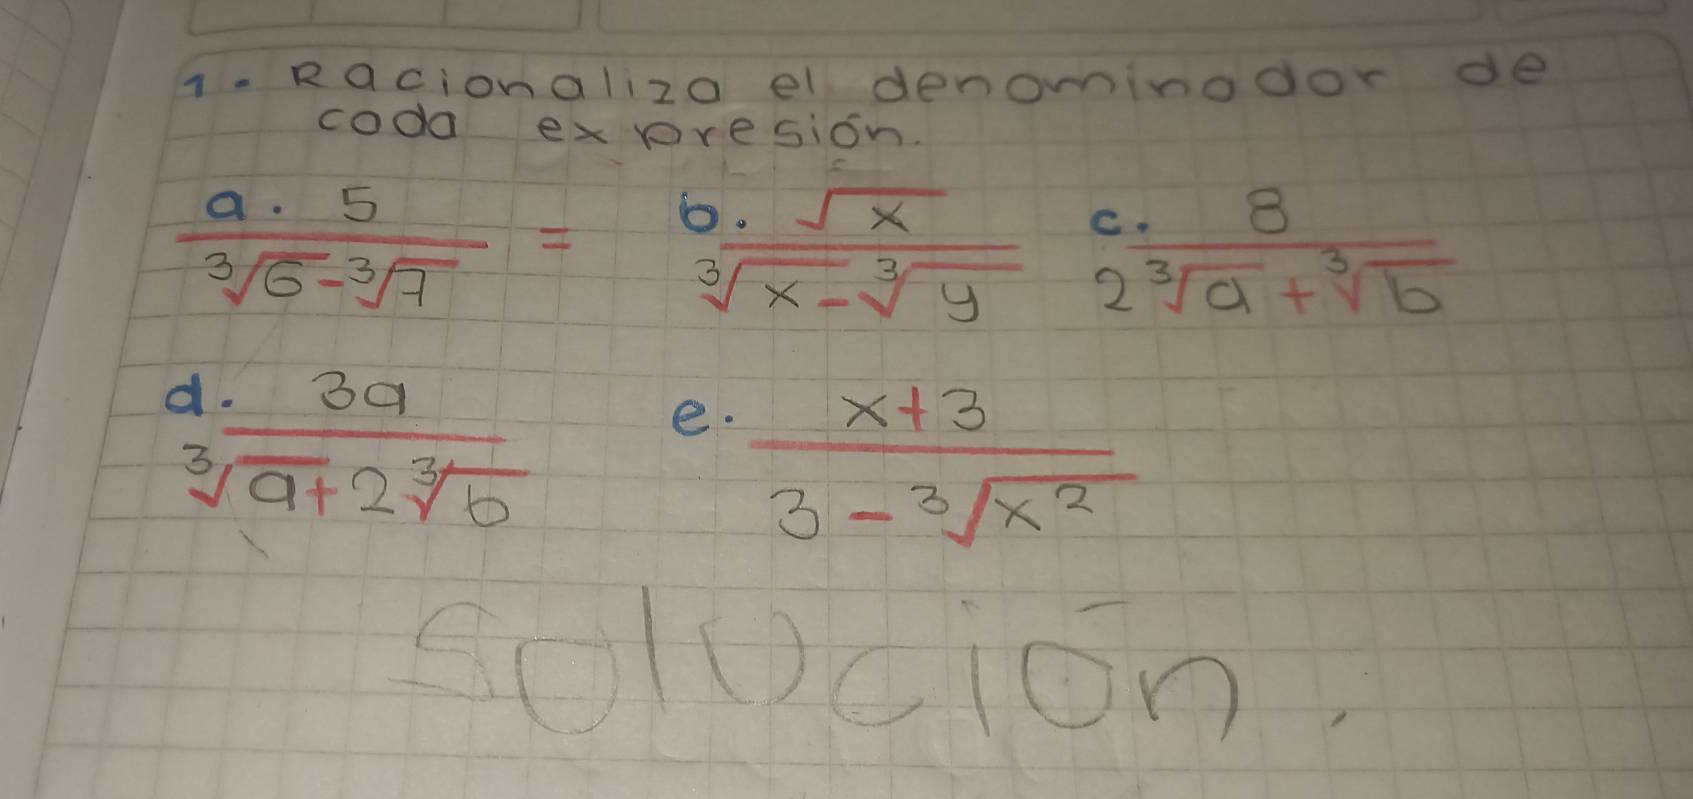 1. Racionaliza el denominador de
cada expresión.
a. 5 / (∛6 - ∛7) =
b. √x / (∛x - ∛y)
c. 8 / (2∛a + ∛b)
d. 3a / (∛a + 2∛b)
e. x+3 / (3 - ∛x²)
Solución.